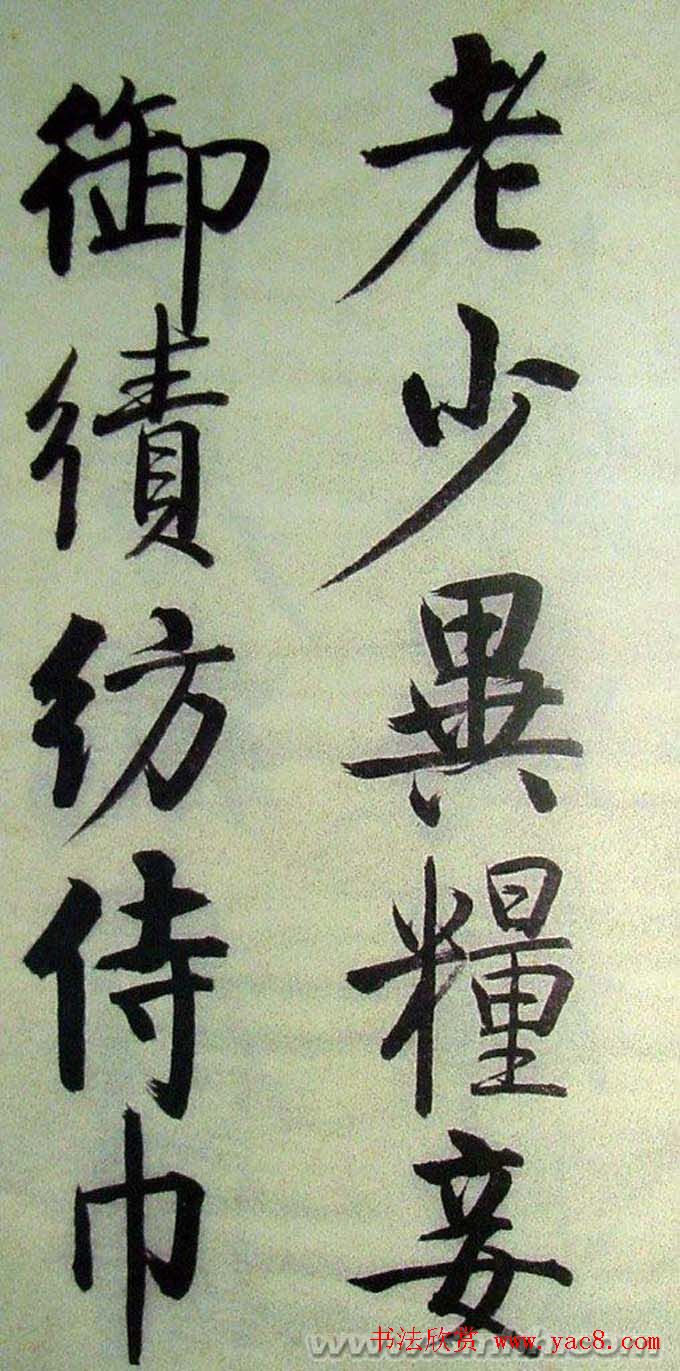 老少異糧妾
御績紡侍巾
书法欣赏 www.yac8.com